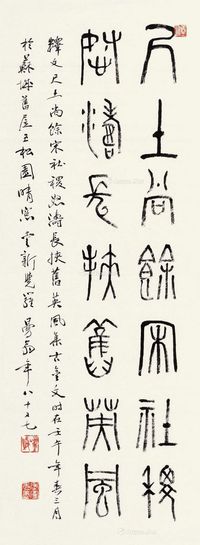 尺土尚餘宋社稷
怒濤長挾舊英風
釋文尺土尚餘宋社稷怒濤長挾舊英風集古金文時在壬午年春三月
於蘇城舊居五松園晴窗新覺羅曼翁年八十又七